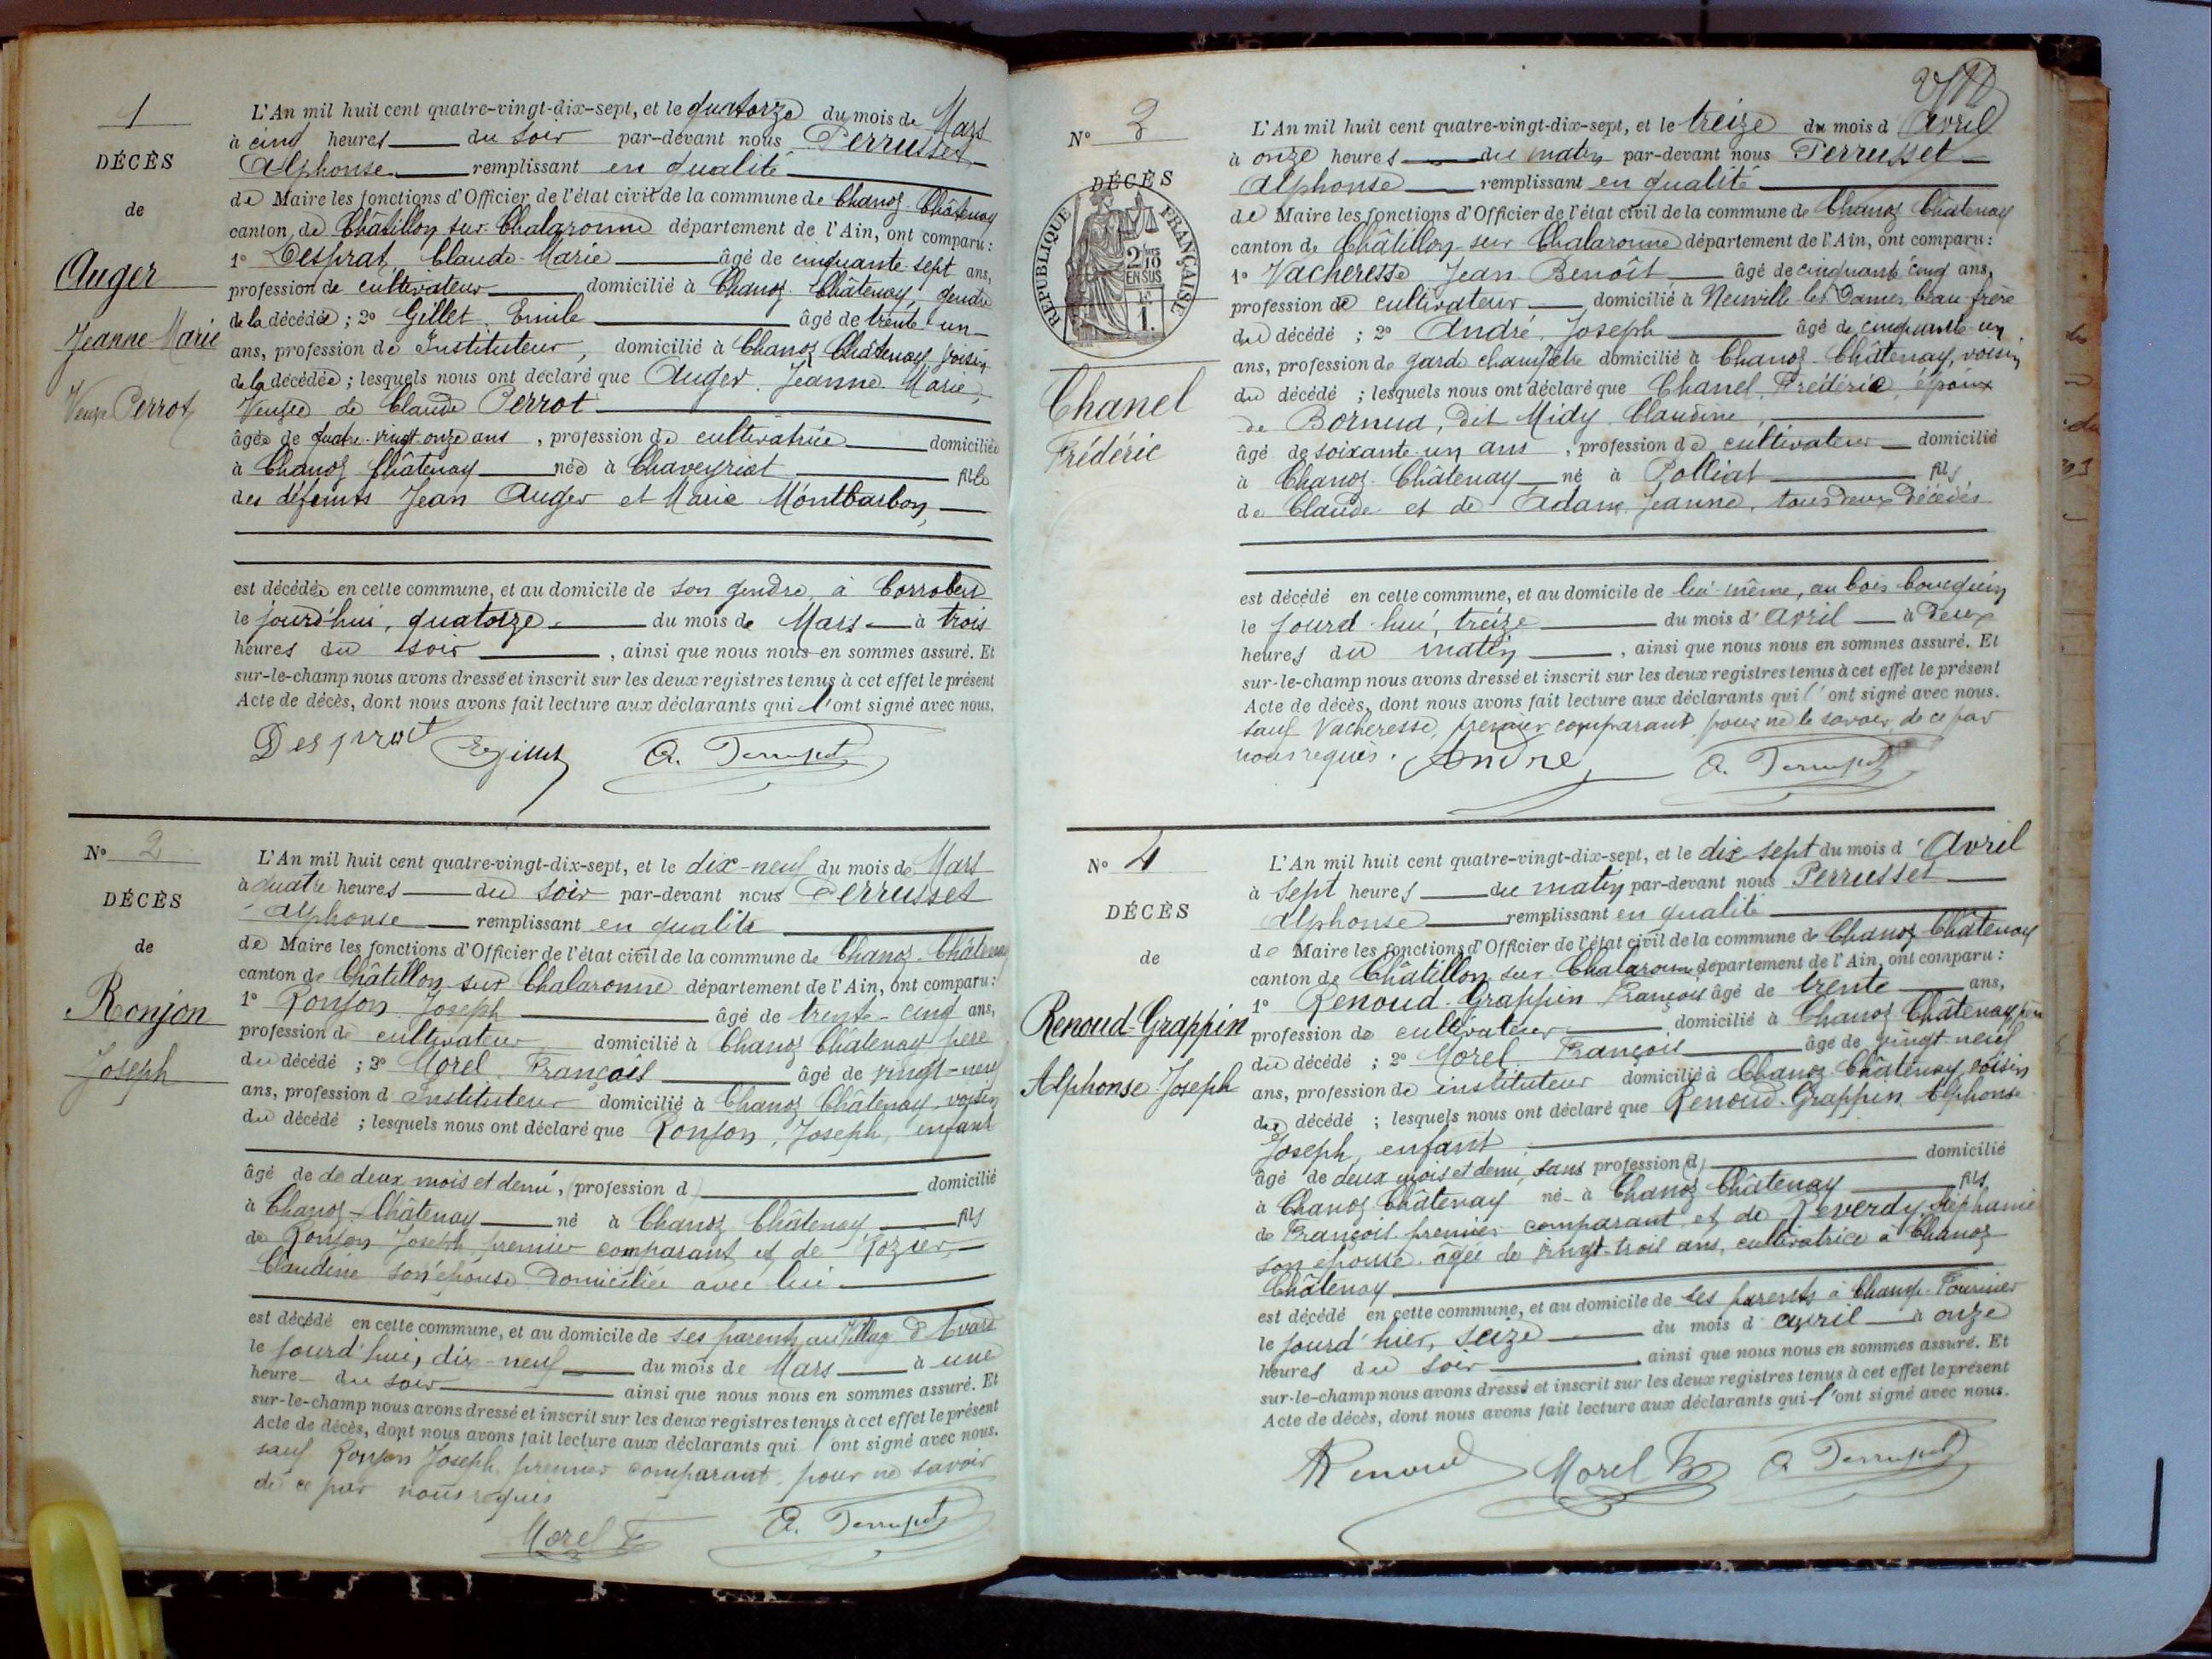 1
DÉCÈS
de
Auger
Jeanne-Marie
Veuve Perrot
L'An mil huit cent quatre-vingt-dix-sept, et le quatorze du mois de Mars
à cinq heures du soir par-devant nous Perrusset
Alphonse remplissant en qualité
de Maire les fonctions d'Officier de l'état civil de la commune de Chanoz-Châtenay
canton de Châtillon sur Chalaronne département de l'Ain, ont comparu :
1° Desprat, Claude-Marie âgé de cinquante-sept ans,
profession de cultivateur domicilié à Chanoz-Châtenay, gendre
de la décédée ; 2° Gillet, Emile âgé de trente-un
ans, profession de Instituteur, domicilié à Chanoz Châtenay, voisin
de la décédée ; lesquels nous ont déclaré que Auger, Jeanne-Marie,
Veuve de Claude Perrot
âgée de quatre-vingt-onze ans, profession de cultivatrice domiciliée
à Chanoz Châtenay née à Chaveyriat fille
des défunts Jean Auger et Marie Montbarbon,
est décédée en cette commune, et au domicile de son gendre, à Corrobert
le jourd'hui, quatorze du mois de Mars à trois
heures du soir, ainsi que nous nous en sommes assuré. Et
sur-le-champ nous avons dressé et inscrit sur les deux registres tenus à cet effet le présent
Acte de décès, dont nous avons fait lecture aux déclarants qui l'ont signé avec nous.
Desprat E. Gillet A. Perrusset
N° 2
DÉCÈS
de
Ronjon
Joseph
L'An mil huit cent quatre-vingt-dix-sept, et le dix-neuf du mois de Mars
à quatre heures du soir par-devant nous Perrusset
Alphonse remplissant en qualité
de Maire les fonctions d'Officier de l'état civil de la commune de Chanoz-Châtenay
canton de Châtillon sur Chalaronne département de l'Ain, ont comparu :
1° Ronjon Joseph âgé de trente-cinq ans,
profession de cultivateur domicilié à Chanoz Châtenay père
du décédé ; 2° Morel François âgé de vingt-neuf
ans, profession d Instituteur domicilié à Chanoz Châtenay, voisin
du décédé ; lesquels nous ont déclaré que Ronjon, Joseph, enfant
âgé de de deux mois et demi, (profession d) domicilié
à Chanoz-Châtenay né à Chanoz Châtenay fils
de Ronjon Joseph premier comparant et de Rozier
Claudine son épouse domiciliée avec lui
est décédé en cette commune, et au domicile de ses parents, au Village d'Avard
le jourd'hui, dix-neuf du mois de Mars à une
heure du soir ainsi que nous nous en sommes assuré. Et
sur-le-champ nous avons dressé et inscrit sur les deux registres tenus à cet effet le présent
Acte de décès, dont nous avons fait lecture aux déclarants qui l'ont signé avec nous.
sauf Ronjon Joseph, premier comparant, pour ne savoir
de ce par nous requis
Morel F. A. Perrusset
N° 3
DÉCÈS
RÉPUBLIQUE FRANÇAISE
2/10
EN SUS
1.
Chanel
Frédéric
L'An mil huit cent quatre-vingt-dix-sept, et le treize du mois d'Avril
à onze heures du matin par-devant nous Perrusset
Alphonse remplissant en qualité
de Maire les fonctions d'Officier de l'état civil de la commune de Chanoz Châtenay
canton de Châtillon-sur Chalaronne département de l'Ain, ont comparu :
1° Vacheresse Jean Benoît âgé de cinquante cinq ans,
profession de cultivateur domicilié à Neuville les Dames, beau-frère
du décédé ; 2° André, Joseph âgé de cinquante-un
ans, profession de garde champêtre domicilié à Chanoz-Châtenay, voisin
du décédé ; lesquels nous ont déclaré que Chanel, Frédéric, époux
de Bornua, dit Midy Claudine,
âgé de soixante-un ans, profession de cultivateur domicilié
à Chanoz-Châtenay né à Polliat fils
de Claude et de Adam Jeanne, tous deux décédés
est décédé en cette commune, et au domicile de lui-même, au bois bouquin
le jourd'hui, treize du mois d'Avril à deux
heures du matin, ainsi que nous nous en sommes assuré. Et
sur-le-champ nous avons dressé et inscrit sur les deux registres tenus à cet effet le présent
Acte de décès, dont nous avons fait lecture aux déclarants qui l'ont signé avec nous.
sauf Vacheresse, premier comparant, pour ne le savoir, de ce par
nous requis. André A. Perrusset
N° 4
DÉCÈS
de
Renoud-Grappin
Alphonse Joseph
L'An mil huit cent quatre-vingt-dix-sept, et le dix sept du mois d'Avril
à sept heures du matin par-devant nous Perrusset
Alphonse remplissant en qualité
de Maire les fonctions d'Officier de l'état civil de la commune de Chanoz Châtenay
canton de Châtillon sur Chalaronne département de l'Ain, ont comparu :
1° Renoud-Grappin François âgé de trente ans,
profession de cultivateur domicilié à Chanoz Châtenay, père
du décédé ; 2° Morel François âgé de vingt-neuf
ans, profession de instituteur domicilié à Chanoz Châtenay, voisin
du décédé ; lesquels nous ont déclaré que Renoud-Grappin Alphonse
Joseph, enfant
âgé de deux mois et demi, sans profession (d) domicilié
à Chanoz Châtenay né à Chanoz Châtenay fils
de François premier comparant et de Reverdy Stéphanie
son épouse, âgée de vingt-trois ans, cultivatrice à Chanoz
Châtenay
est décédé en cette commune, et au domicile de ses parents à Champ-Fournier
le jourd'hier, seize du mois d avril à onze
heures du soir ainsi que nous nous en sommes assuré. Et
sur-le-champ nous avons dressé et inscrit sur les deux registres tenus à cet effet le présent
Acte de décès, dont nous avons fait lecture aux déclarants qui l'ont signé avec nous.
Renoud Morel F. A Perrusset